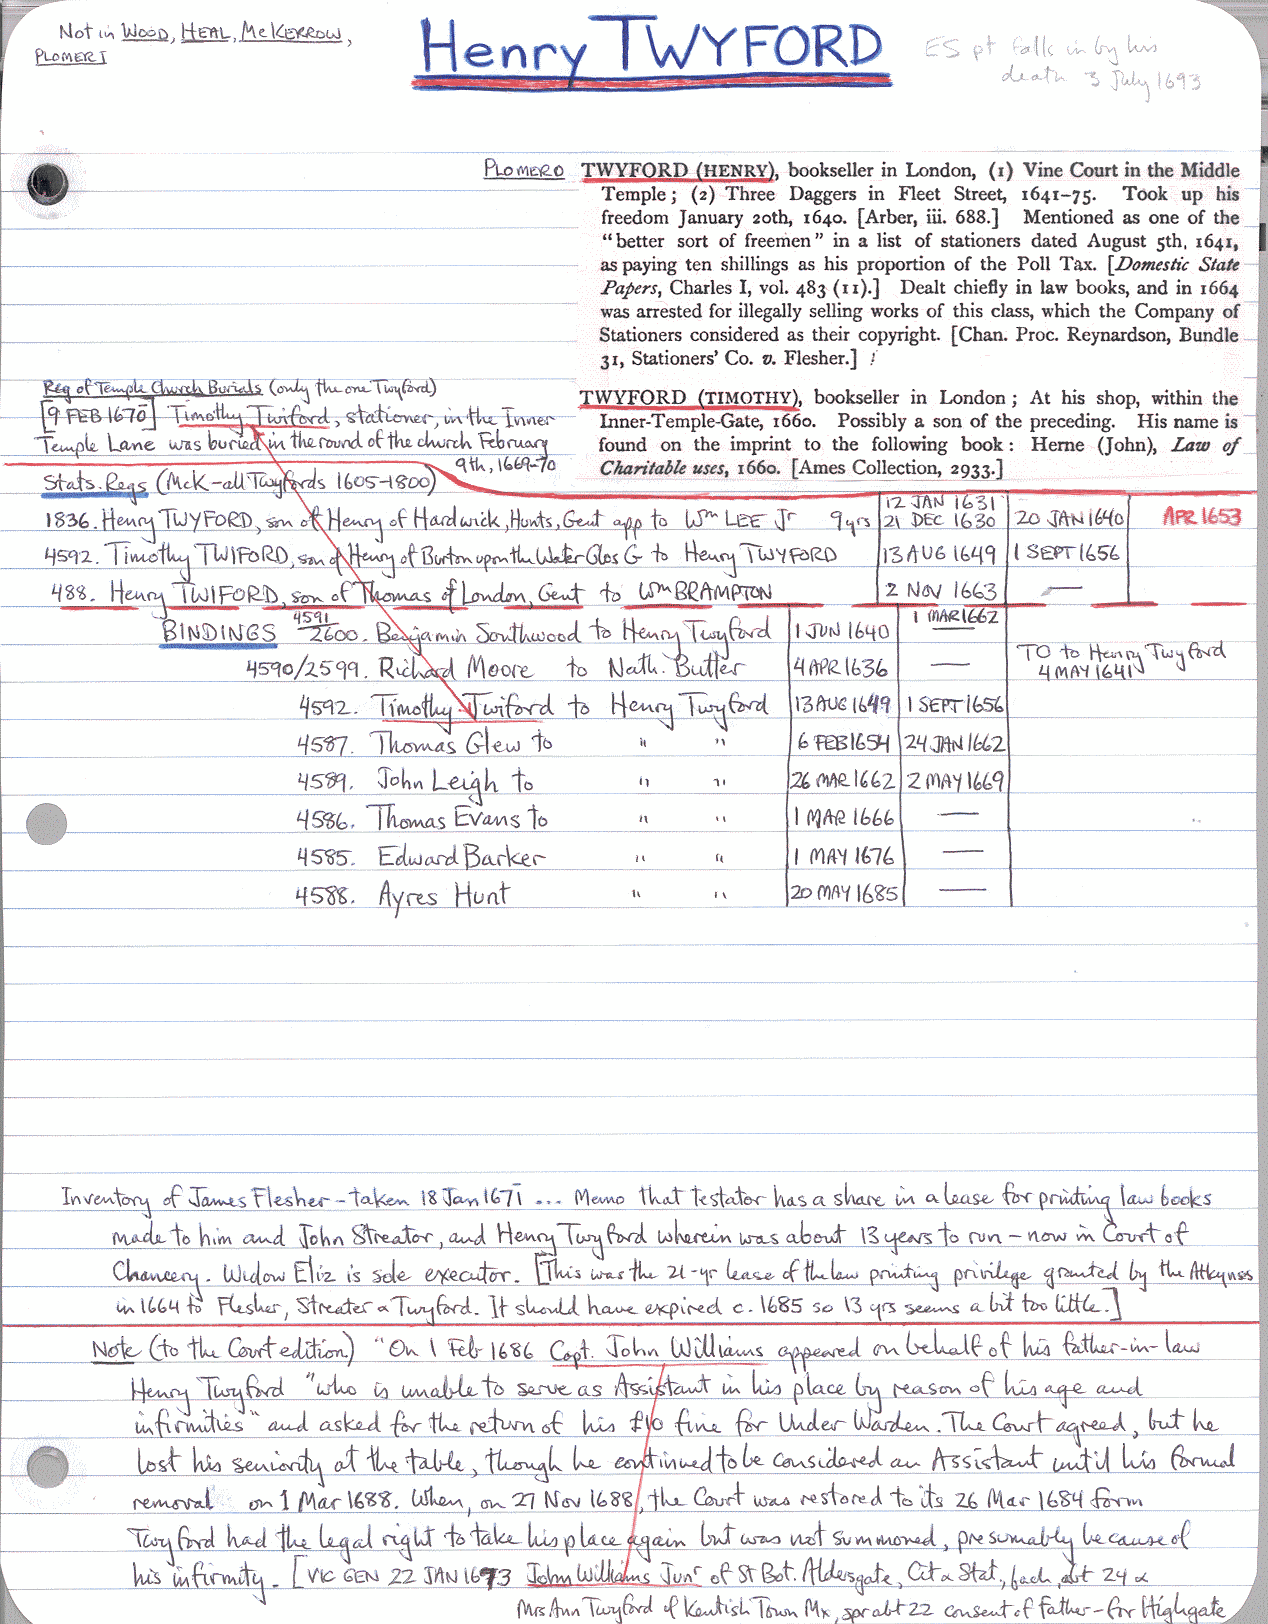 Not in WOOD, HEAL, McKERROW,
PLOMER I
Henry TWYFORD
ES pt falls in by his
death 3 July 1693
PLOMER O
TWYFORD (HENRY), bookseller in London, (1) Vine Court in the Middle
Temple; (2) Three Daggers in Fleet Street, 1641–75. Took up his
freedom January 20th, 1640. [Arber, iii. 688.] Mentioned as one of the
“better sort of freemen” in a list of stationers dated August 5th, 1641,
as paying ten shillings as his proportion of the Poll Tax. [Domestic State
Papers, Charles I, vol. 483 (11).] Dealt chiefly in law books, and in 1664
was arrested for illegally selling works of this class, which the Company of
Stationers considered as their copyright. [Chan. Proc. Reynardson, Bundle
31, Stationers’ Co. v. Flesher.]
TWYFORD (TIMOTHY), bookseller in London; At his shop, within the
Inner-Temple-Gate, 1660. Possibly a son of the preceding. His name is
found on the imprint to the following book: Herne (John), Law of
Charitable uses, 1660. [Ames Collection, 2933.]
Reg of Temple Church Burials (only the one Twyford)
[9 FEB 1670] Timothy Twiford, stationer, in the Inner
Temple Lane was buried in the round of the church February
9th, 1669-70
Stats. Regs (McK-all Twyfords 1605-1800)
12 JAN 1631
1836. Henry TWYFORD, son of Henry of Hardwick, Hunts, Gent app to Wm LEE Jr 9 yrs 21 DEC 1630 20 JAN 1640 APR 1653
4592. Timothy TWIFORD, son of Henry of Burton upon the Water Glos G to Henry TWYFORD 13 AUG 1649 1 SEPT 1656
488. Henry TWIFORD, son of Thomas of London, Gent to Wm BRAMPTON 2 NOV 1663 —
BINDINGS 4591/2600. Benjamin Southwood to Henry Twyford 1 JUN 1640 1 MAR 1662
4590/2599. Richard Moore to Nath. Butter 4 APR 1636 — TO to Henry Twyford
4 MAY 1641
4592. Timothy Twiford to Henry Twyford 13 AUG 1649 1 SEPT 1656
4587. Thomas Glew to " " 6 FEB 1654 24 JAN 1662
4589. John Leigh to " " 26 MAR 1662 2 MAY 1669
4586. Thomas Evans to " " 1 MAR 1666 —
4585. Edward Barker " " 1 MAY 1676 —
4588. Ayres Hunt " " 20 MAY 1685 —
Inventory of James Flesher – taken 18 Jan 1671 ... Memo that testator has a share in a lease for printing law books
made to him and John Streator, and Henry Twyford wherein was about 13 years to run – now in Court of
Chancery. Widow Eliz is sole executor. [This was the 21-yr lease of the law printing privilege granted by the Atkynses
in 1664 to Flesher, Streater & Twyford. It should have expired c. 1685 so 13 yrs seems a bit too little.]
Note (to the Court edition) "On 1 Feb 1686 Capt. John Williams appeared on behalf of his father-in-law
Henry Twyford "who is unable to serve as Assistant in his place by reason of his age and
infirmities" and asked for the return of his £10 fine for Under Warden. The Court agreed, but he
lost his seniority at the table, though he continued to be considered an Assistant until his formal
removal on 1 Mar 1688. When, on 27 Nov 1688, the Court was restored to its 26 Mar 1684 form
Twyford had the legal right to take his place again but was not summoned, presumably because of
his infirmity. [VIC GEN 22 JAN 1673 John Williams Junr of St Bot. Aldersgate, Cit & Stat, bach, abt 24 &
Mrs Ann Twyford of Kentish Town Mx, spr abt 22 consent of Father – for Highgate